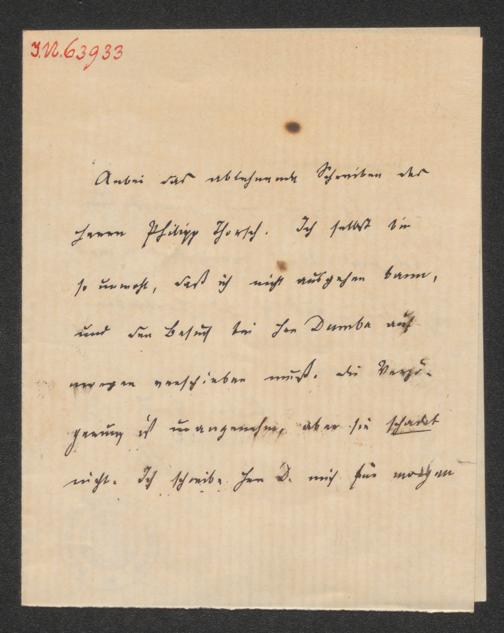 J.N. 63933
Anbei das ablehnende Schreiben des
Herrn Philipp Thorsch. Ich selbst bin
so unwohl, daß ich nicht ausgehen kann,
und den Besuch bei Hrn Dumba auf
morgen verschieben muß. Die Verzö-
gerung ist unangenehm, aber sie schadet
nicht. Ich schreibe Hrn D. mich für morgen